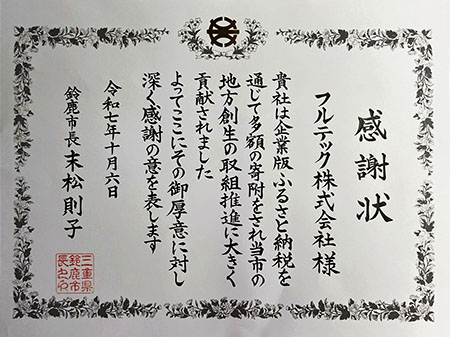 感謝状
フルテック株式会社 様
貴社は企業版ふるさと納税を
通じて多額の寄附をされ当市の
地方創生の取組推進に大きく
貢献されました
よってここにその御厚意に対し
深く感謝の意を表します
令和七年十月六日
鈴鹿市長 末松則子
三重県
鈴鹿市
長之印